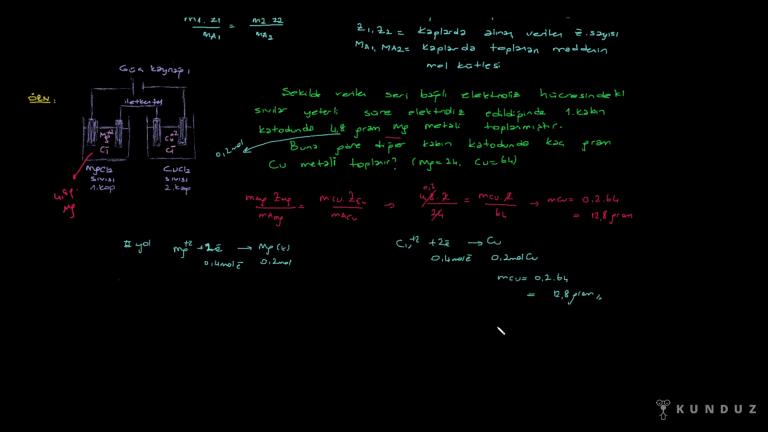 m1. z1 / mA1 = m2. z2 / mA2
Z1, Z2 = kaplarda alınan verilen ē sayısı
MA1, MA2 = kaplarda toplanan maddenin
mol kütlesi
ÖRN:
Güç kaynağı
iletken tel
Mg+2
Cl-
Cu+2
Cl-
MgCl2
sıvısı
1.kap
CuCl2
sıvısı
2.kap
4,8g
Mg
Şekilde verilen seri bağlı elektroliz hücresindeki
sıvılar yeterli süre elektroliz edildiğinde 1.kabın
katodunda 4,8 gram Mg metali toplanmıştır.
Buna göre diğer kabın katodunda kaç gram
Cu metali toplanır? (Mg=24, Cu=64)
0,2mol
mMg ZMg / mAMg = mCu.ZCu / mACu → 4,8.2 / 24 = mCu.2 / 64 → mCu = 0,2.64
0,2
= 12,8 gram
II yol
Mg+2 + 2ē → Mg(k)
0,4molē 0,2mol
Cu+2 + 2ē → Cu
0,4molē 0,2molCu
mCu= 0,2.64
= 12,8 gram
KUNDUZ